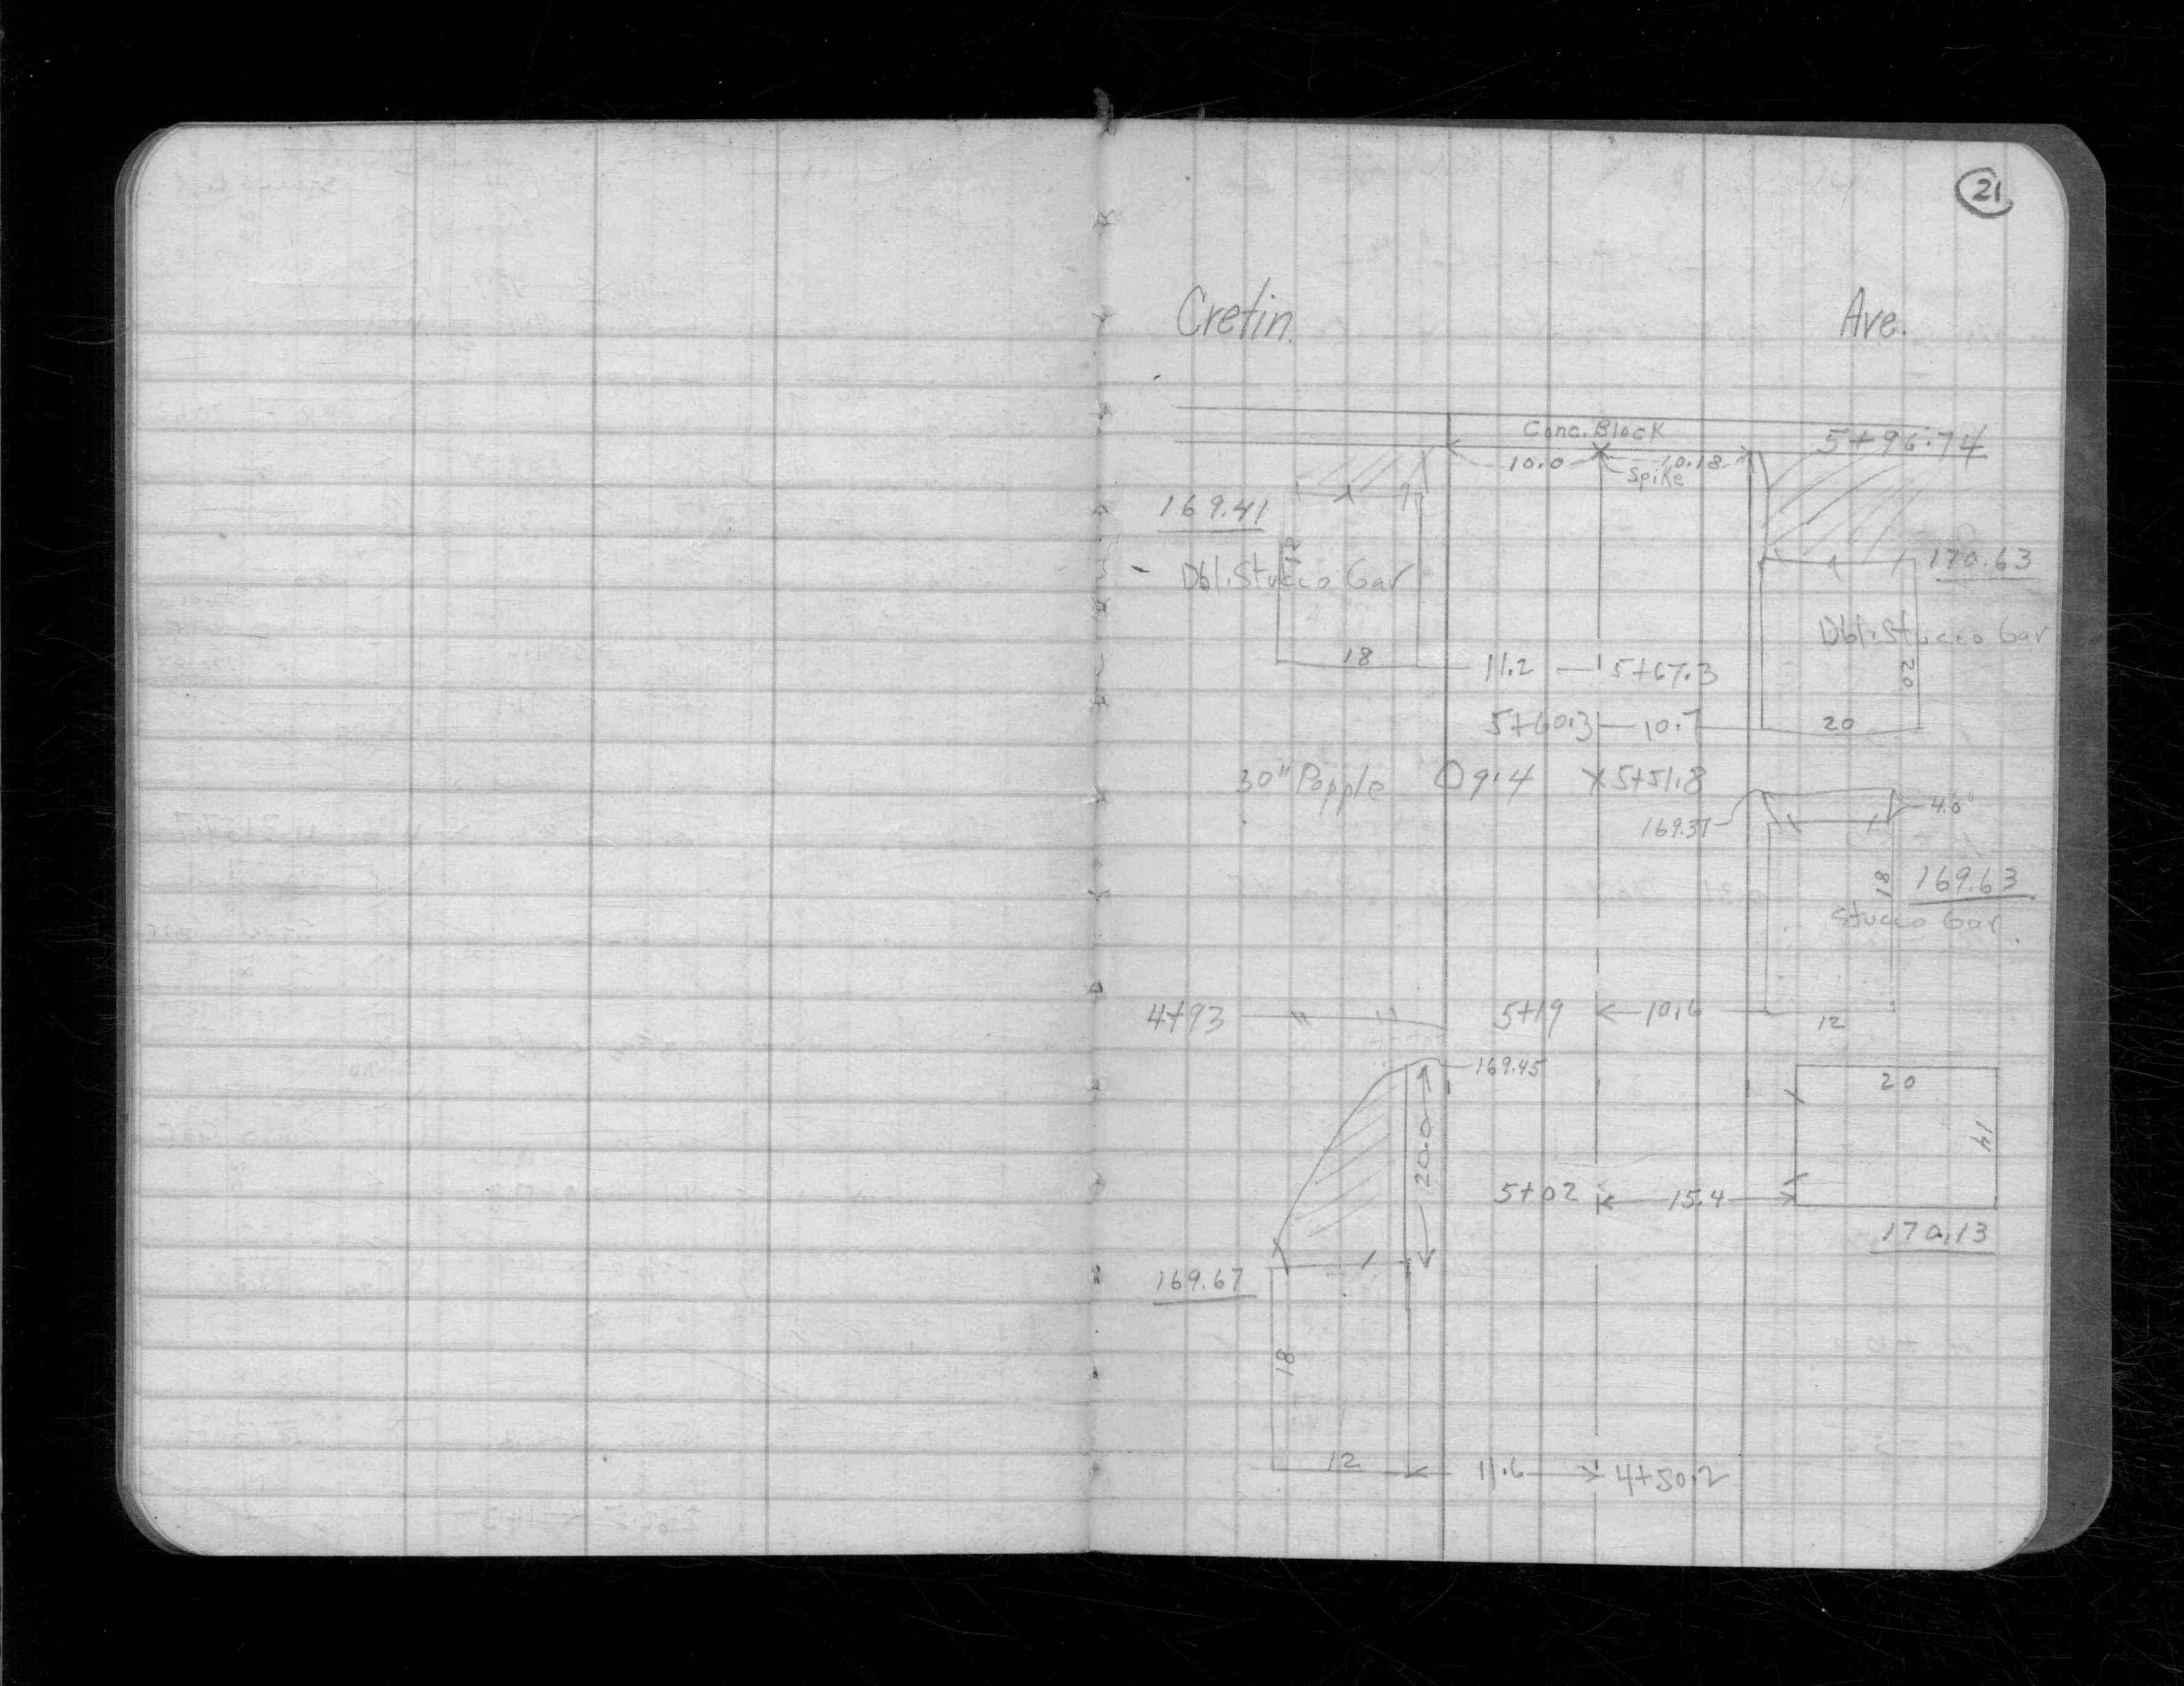 21
Cretin. Ave.
Conc. Block
5+96.74
10.0 10.18
Spike
169.41
18
Dbl. Stucco Gar
170.63
Dbl. Stucco Gar
20
18 11.2 5+67.3
5+60.3 10.7 20
30" Popple 9.4 5+51.8
4.0
169.37
18
169.63
Stucco Gar.
4+93 " " 5+19 10.6
12
169.45
20
14
20.0
5+02 15.4
170.13
169.67
18
12 11.6 4+50.2